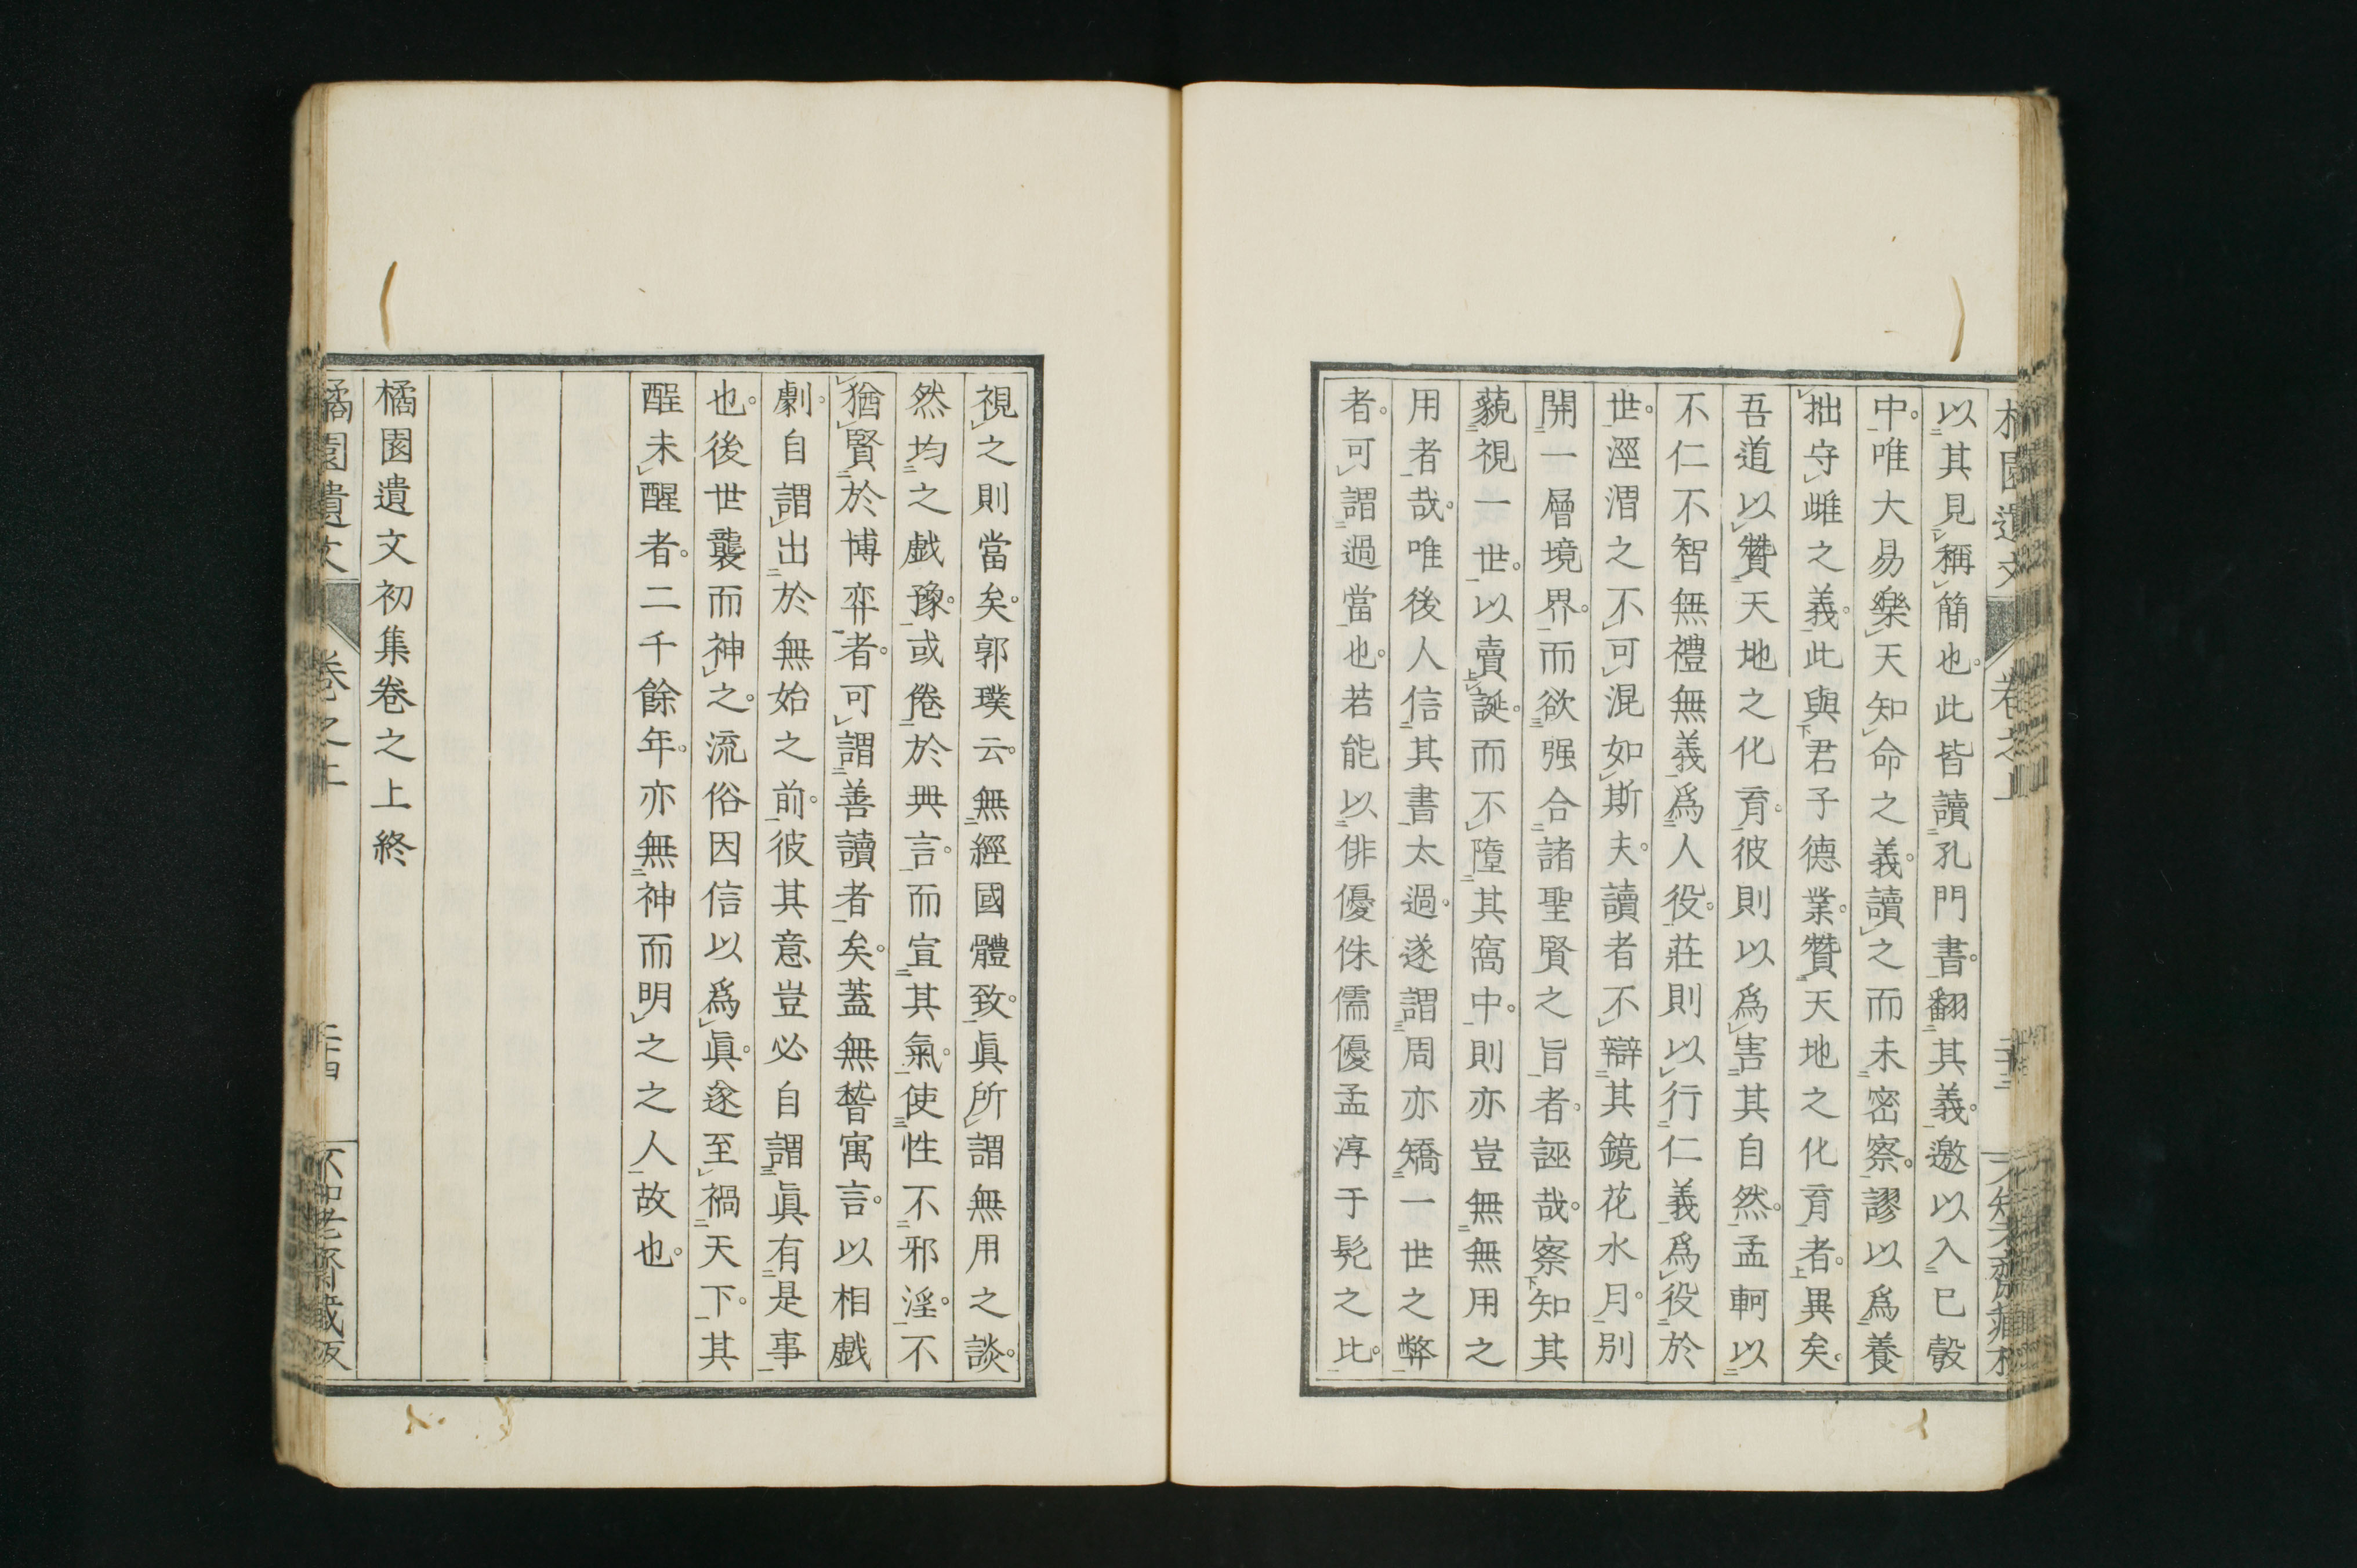 橘園遺文 卷之上
以其見稱簡也。此皆讀孔門書。翻其義。邀以入已彀
中。唯大易樂天知命之義。讀之而未密察。謬以爲養
拙守雌之義。此與君子德業。贊天地之化育者。異矣。
吾道以贊天地之化育。彼則以爲害其自然。孟軻以
不仁不智無禮無義爲人役。莊則以行仁義爲役於
世。涇渭之不可混如斯夫。讀者不辯其鏡花水月。別
開一層境界。而欲强合諸聖賢之旨者。誣哉。察知其
藐視一世。以賣誕。而不墮其窩中。則亦豈無無用之
用者哉。唯後人信其書太過。遂謂周亦矯一世之弊
者。可謂過當也。若能以俳優侏儒優孟淳于髡之比。
視之則當矣。郭璞云。無經國體致。眞所謂無用之談。
然均之戯豫。或倦於典言。而宣其氣。使性不邪淫。不
猶賢於博弈者。可謂善讀者矣。蓋無稽寓言。以相戯
劇。自謂出於無始之前。彼其意豈必自謂眞有是事
也。後世襲而神之。流俗因信以爲眞。遂至禍天下。其
酲未醒者。二千餘年。亦無神而明之之人故也。
橘園遺文初集卷之上終
橘園遺文 卷之上